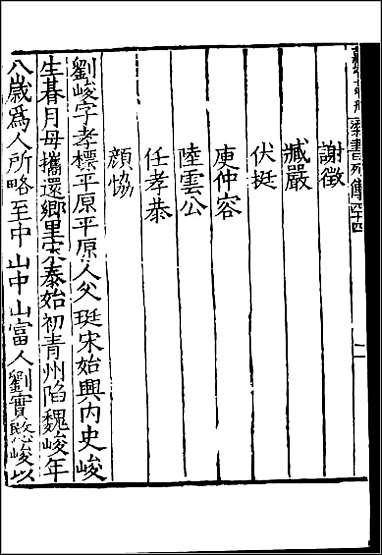 梁書列傳四十四
二
謝徵
臧嚴
伏挺
庾仲容
陸雲公
任孝恭
顔協
劉峻字孝標平原平原人父珽宋始興內史峻
生朞月母攜還鄉里宋泰始初青州陷魏峻年
八歲爲人所略至中山中山富人劉實愍峻以